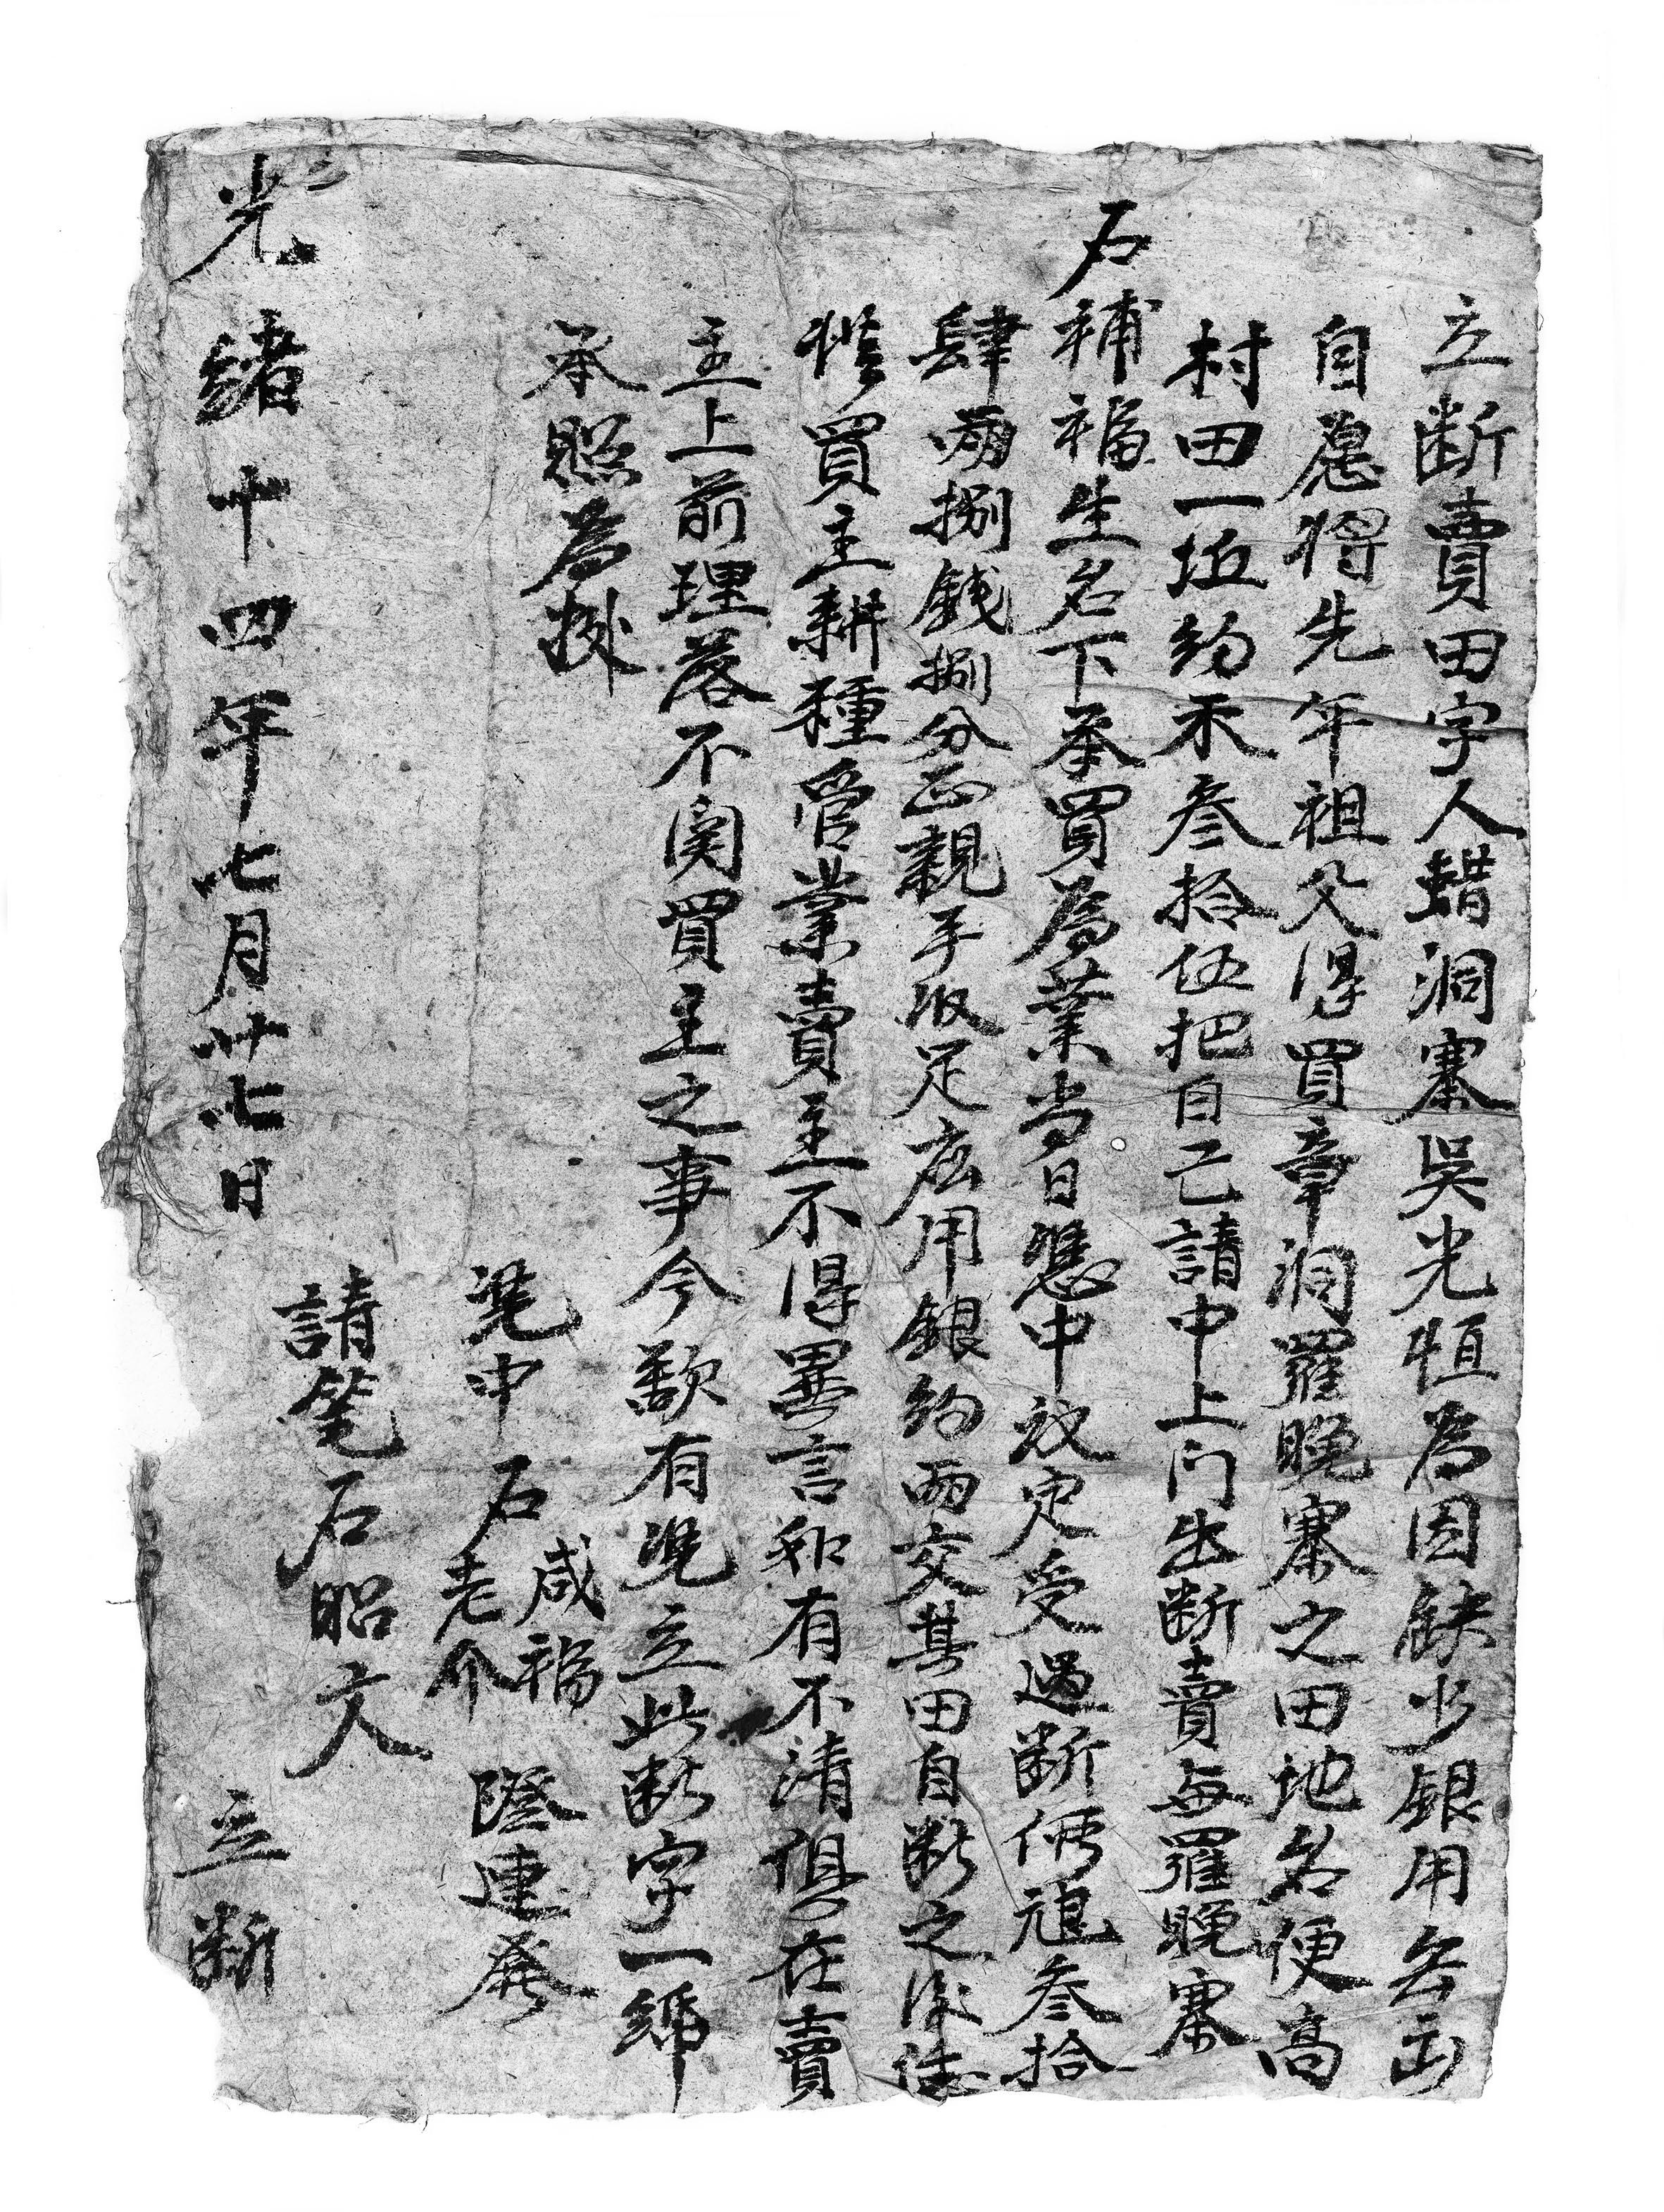 立断賣田字人蜡洞寨吳光恒為因缺少銀用無出
自愿將先年祖父得買章洞羅晚寨之田地名便高
村田一坵約禾叁拾伍把自己請中上门出断賣與羅晚寨
石補福生名下承買為業当日憑中議定受過断價艮叁拾
肆兩捌錢捌分正親手收足应用銀約兩交其田自断之後任
凭買主耕種管業賣主不得異言如有不清俱在賣
主上前理落不関買主之事今欲有凭立此断字一紙
承照為據
凭中 石 咸福 老介 隆連發
請笔石昭文
光緒十四年七月廿七日 立断